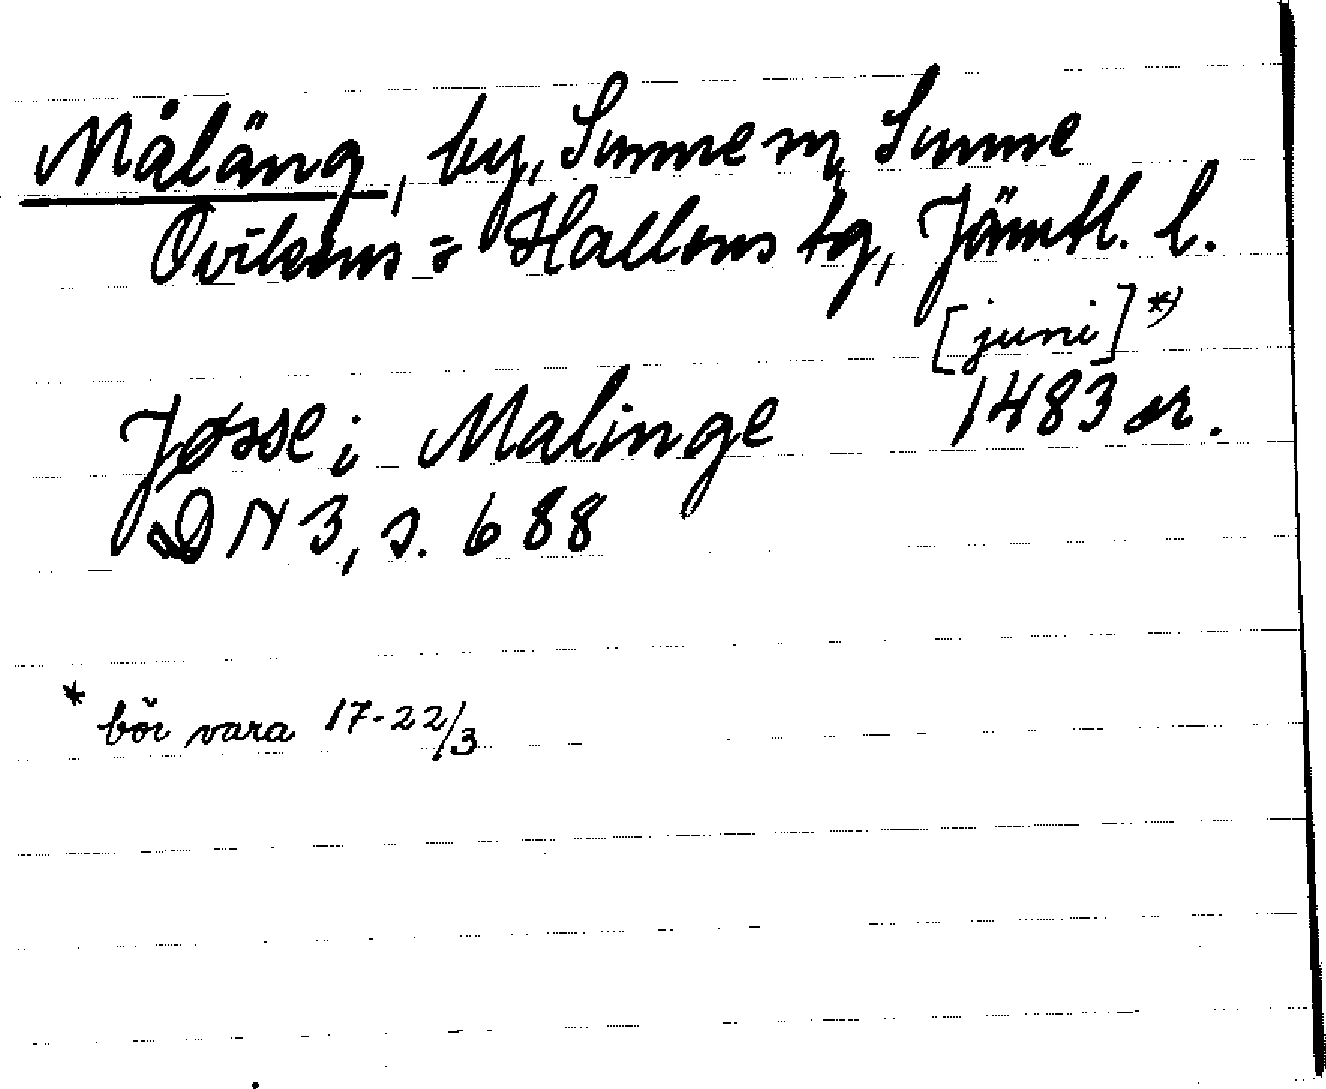 Måläng, by, Sunne sn, Sunne
Ovikens o Hallens tg, Jämtl. l.
[juni] *)
Jøsse i Malinge 1483 or.
DN 3, s. 688
* bör vara 17-22/3